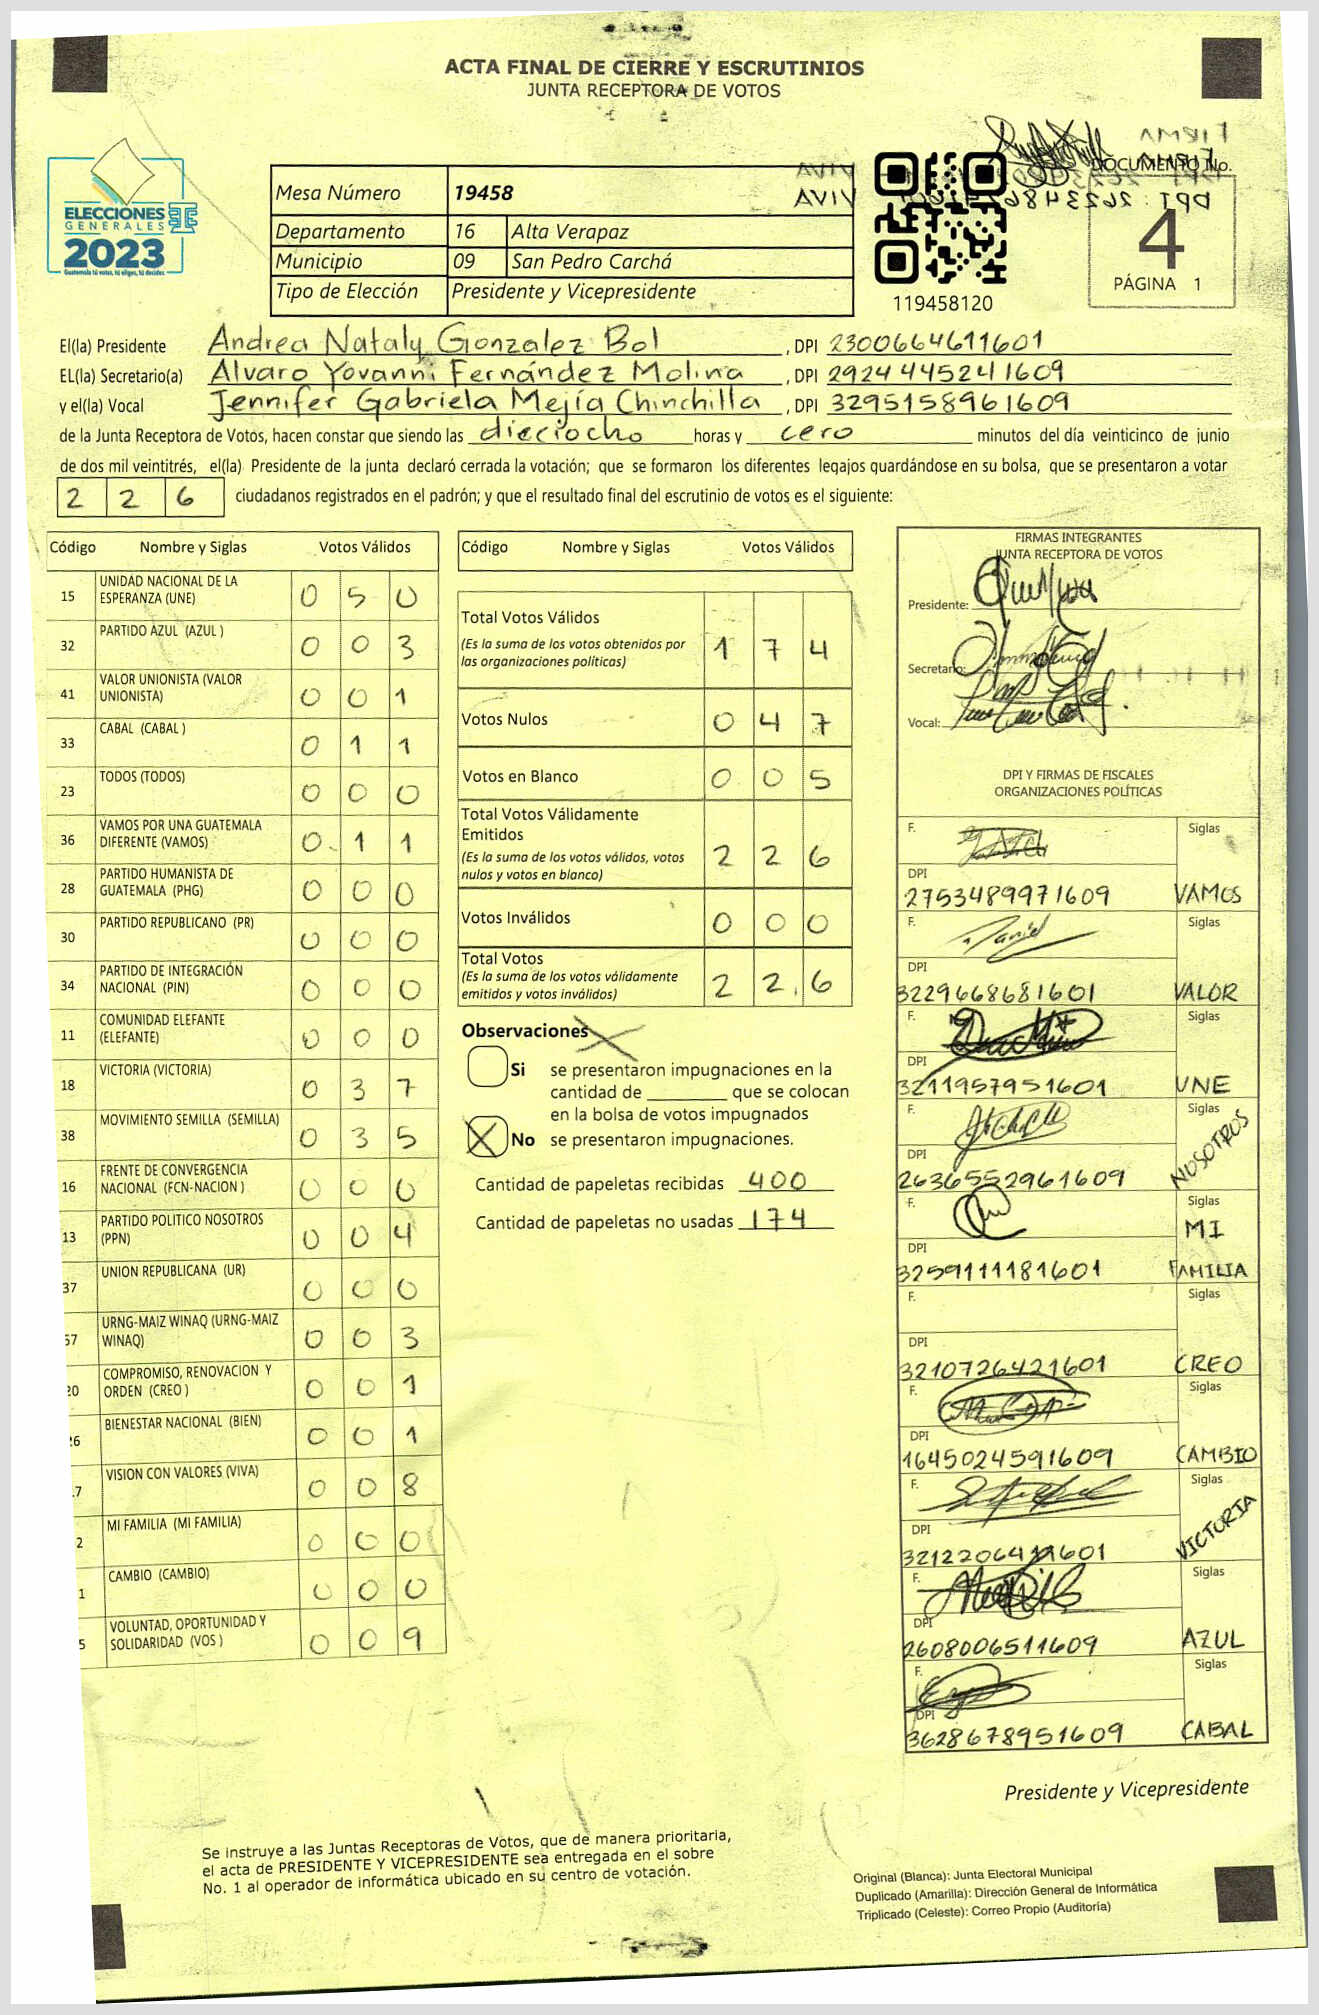 ACTA FINAL DE CIERRE Y ESCRUTINIOS
JUNTA RECEPTORA DE VOTOS
ELECCIONES
GENERALES
2023
Guatemala tú votas, tú eliges, tú decides
Mesa Número 19458
Departamento 16 Alta Verapaz
Municipio 09 San Pedro Carchá
Tipo de Elección Presidente y Vicepresidente
119458120
DOCUMENTO No.
4
PÁGINA 1
El(la) Presidente Andrea Nataly Gonzalez Bol, DPI 2300664611601
EL(la) Secretario(a) Alvaro Yovanni Fernández Molina, DPI 2924445241609
y el(la) Vocal Jennifer Gabriela Mejía Chinchilla, DPI 3295158961609
de la Junta Receptora de Votos, hacen constar que siendo las dieciocho horas y cero minutos del día veinticinco de junio
de dos mil veintitrés, el(la) Presidente de la junta declaró cerrada la votación; que se formaron los diferentes legajos guardándose en su bolsa, que se presentaron a votar
2 2 6 ciudadanos registrados en el padrón; y que el resultado final del escrutinio de votos es el siguiente:
Código Nombre y Siglas Votos Válidos
15 UNIDAD NACIONAL DE LA ESPERANZA (UNE) 0 5 0
32 PARTIDO AZUL (AZUL ) 0 0 3
41 VALOR UNIONISTA (VALOR UNIONISTA) 0 0 1
33 CABAL (CABAL ) 0 1 1
23 TODOS (TODOS) 0 0 0
36 VAMOS POR UNA GUATEMALA DIFERENTE (VAMOS) 0 1 1
28 PARTIDO HUMANISTA DE GUATEMALA (PHG) 0 0 0
30 PARTIDO REPUBLICANO (PR) 0 0 0
34 PARTIDO DE INTEGRACIÓN NACIONAL (PIN) 0 0 0
11 COMUNIDAD ELEFANTE (ELEFANTE) 0 0 0
18 VICTORIA (VICTORIA) 0 3 7
38 MOVIMIENTO SEMILLA (SEMILLA) 0 3 5
16 FRENTE DE CONVERGENCIA NACIONAL (FCN-NACION ) 0 0 0
13 PARTIDO POLITICO NOSOTROS (PPN) 0 0 4
37 UNION REPUBLICANA (UR) 0 0 0
57 URNG-MAIZ WINAQ (URNG-MAIZ WINAQ) 0 0 3
20 COMPROMISO, RENOVACION Y ORDEN (CREO ) 0 0 1
26 BIENESTAR NACIONAL (BIEN) 0 0 1
7 VISION CON VALORES (VIVA) 0 0 8
2 MI FAMILIA (MI FAMILIA) 0 0 0
1 CAMBIO (CAMBIO) 0 0 0
5 VOLUNTAD, OPORTUNIDAD Y SOLIDARIDAD (VOS ) 0 0 9
Código Nombre y Siglas Votos Válidos
Total Votos Válidos 1 7 4
(Es la suma de los votos obtenidos por
las organizaciones políticas)
Votos Nulos 0 4 7
Votos en Blanco 0 0 5
Total Votos Válidamente
Emitidos 2 2 6
(Es la suma de los votos válidos, votos
nulos y votos en blanco)
Votos Inválidos 0 0 0
Total Votos 2 2 6
(Es la suma de los votos válidamente
emitidos y votos inválidos)
Observaciones
Si se presentaron impugnaciones en la
cantidad de ________ que se colocan
en la bolsa de votos impugnados
X No se presentaron impugnaciones.
Cantidad de papeletas recibidas 400
Cantidad de papeletas no usadas 174
FIRMAS INTEGRANTES
JUNTA RECEPTORA DE VOTOS
Presidente:
Secretario:
Vocal:
DPI Y FIRMAS DE FISCALES
ORGANIZACIONES POLÍTICAS
F. Siglas
DPI
2753489971609 VAMOS
F. Daniel Siglas
DPI
3229668681601 VALOR
F. Siglas
DPI
3211957951601 UNE
F. Siglas
DPI
2636552961609 NOSOTROS
F. Siglas
DPI
3259111181601 MI FAMILIA
F. Siglas
DPI
3210726421601 CREO
F. Siglas
DPI
1645024591609 CAMBIO
F. Siglas
DPI
3212206411601 VICTORIA
F. Siglas
DPI
2608006511609 AZUL
F. Siglas
DPI
3628678951609 CABAL
Presidente y Vicepresidente
Se instruye a las Juntas Receptoras de Votos, que de manera prioritaria,
el acta de PRESIDENTE Y VICEPRESIDENTE sea entregada en el sobre
No. 1 al operador de informática ubicado en su centro de votación.
Original (Blanca): Junta Electoral Municipal
Duplicado (Amarilla): Dirección General de Informática
Triplicado (Celeste): Correo Propio (Auditoría)